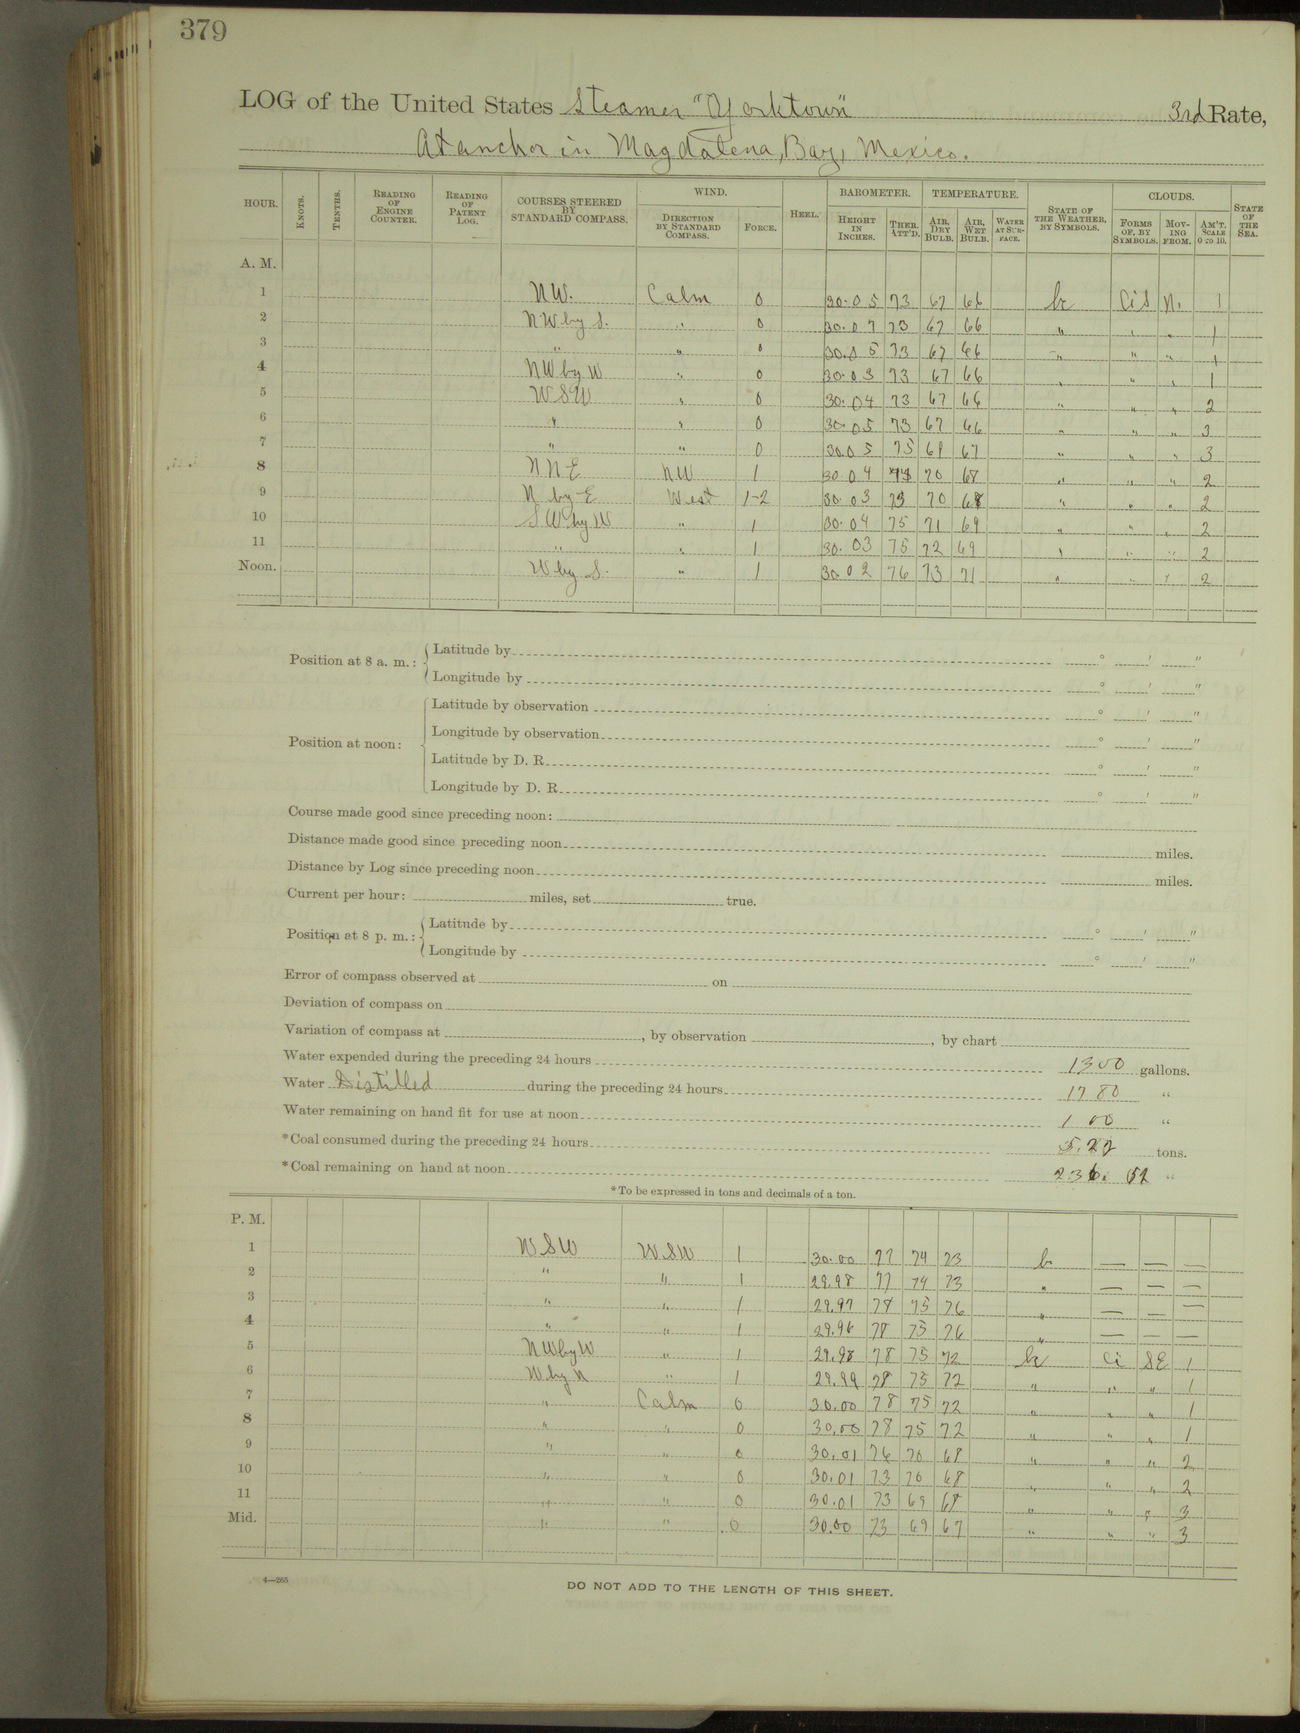 379
LOG of the United States Steamer "Yorktown" 3rd Rate,
At anchor in Magdalena, Bay, Mexico.
HOUR. KNOTS. TENTHS. READING OF ENGINE COUNTER. READING OF PATENT LOG. COURSES STEERED BY STANDARD COMPASS. WIND. DIRECTION BY STANDARD COMPASS. FORCE. HEEL. BAROMETER. HEIGHT IN INCHES. THER. ATT'D. TEMPERATURE. AIR, DRY BULB. AIR, WET BULB. WATER AT SURFACE. STATE OF THE WEATHER, BY SYMBOLS. CLOUDS. FORMS OF, BY SYMBOLS. MOVING FROM. AM'T. SCALE 0 TO 10. STATE OF THE SEA.
A. M.
1 NW. Calm 0 30.05 73 67 66 bc CiS N. 1
2 NW by S. " 0 30.07 73 67 66 " " " 1
3 " " 0 30.05 73 67 66 " " " 1
4 NW by W " 0 30.03 73 67 66 " " " 1
5 WSW " 0 30.04 73 67 66 " " " 2
6 " " 0 30.05 73 67 66 " " " 3
7 " " 0 30.05 75 69 67 " " " 3
8 NNE NW 1 30.04 73 70 68 " " " 2
9 N by E West 1-2 30.03 73 70 68 " " " 2
10 SW by W " 1 30.04 75 71 69 " " " 2
11 " " 1 30.03 75 72 69 " " " 2
Noon. W by S. " 1 30.02 76 73 71 " " " 2
Position at 8 a. m.: Latitude by ° ′ ″
Longitude by ° ′ ″
Position at noon: Latitude by observation ° ′ ″
Longitude by observation ° ′ ″
Latitude by D. R. ° ′ ″
Longitude by D. R. ° ′ ″
Course made good since preceding noon:
Distance made good since preceding noon miles.
Distance by Log since preceding noon miles.
Current per hour: miles, set true.
Position at 8 p. m.: Latitude by ° ′ ″
Longitude by ° ′ ″
Error of compass observed at on
Deviation of compass on
Variation of compass at , by observation , by chart
Water expended during the preceding 24 hours 1300 gallons.
Water Distilled during the preceding 24 hours 1780 "
Water remaining on hand fit for use at noon "
*Coal consumed during the preceding 24 hours 5.22 tons.
*Coal remaining on hand at noon 236. "
*To be expressed in tons and decimals of a ton.
P. M.
1 WSW WSW 1 30.00 77 74 73 b — — —
2 " " 1 29.98 77 74 73 " — — —
3 " " 1 29.97 78 75 76 " — — —
4 " " 1 29.96 78 75 76 " — — —
5 NW by W " 1 29.98 78 75 72 bc Ci SE 1
6 W by N " 1 29.99 78 75 72 " " " 1
7 " Calm 0 30.00 78 75 72 " " " 1
8 " " 0 30.00 78 75 72 " " " 1
9 " " 0 30.01 76 70 68 " " " 2
10 " " 0 30.01 73 70 68 " " " 2
11 " " 0 30.01 73 69 68 " " " 3
Mid. " " 0 30.00 73 69 67 " " " 3
4—265
DO NOT ADD TO THE LENGTH OF THIS SHEET.